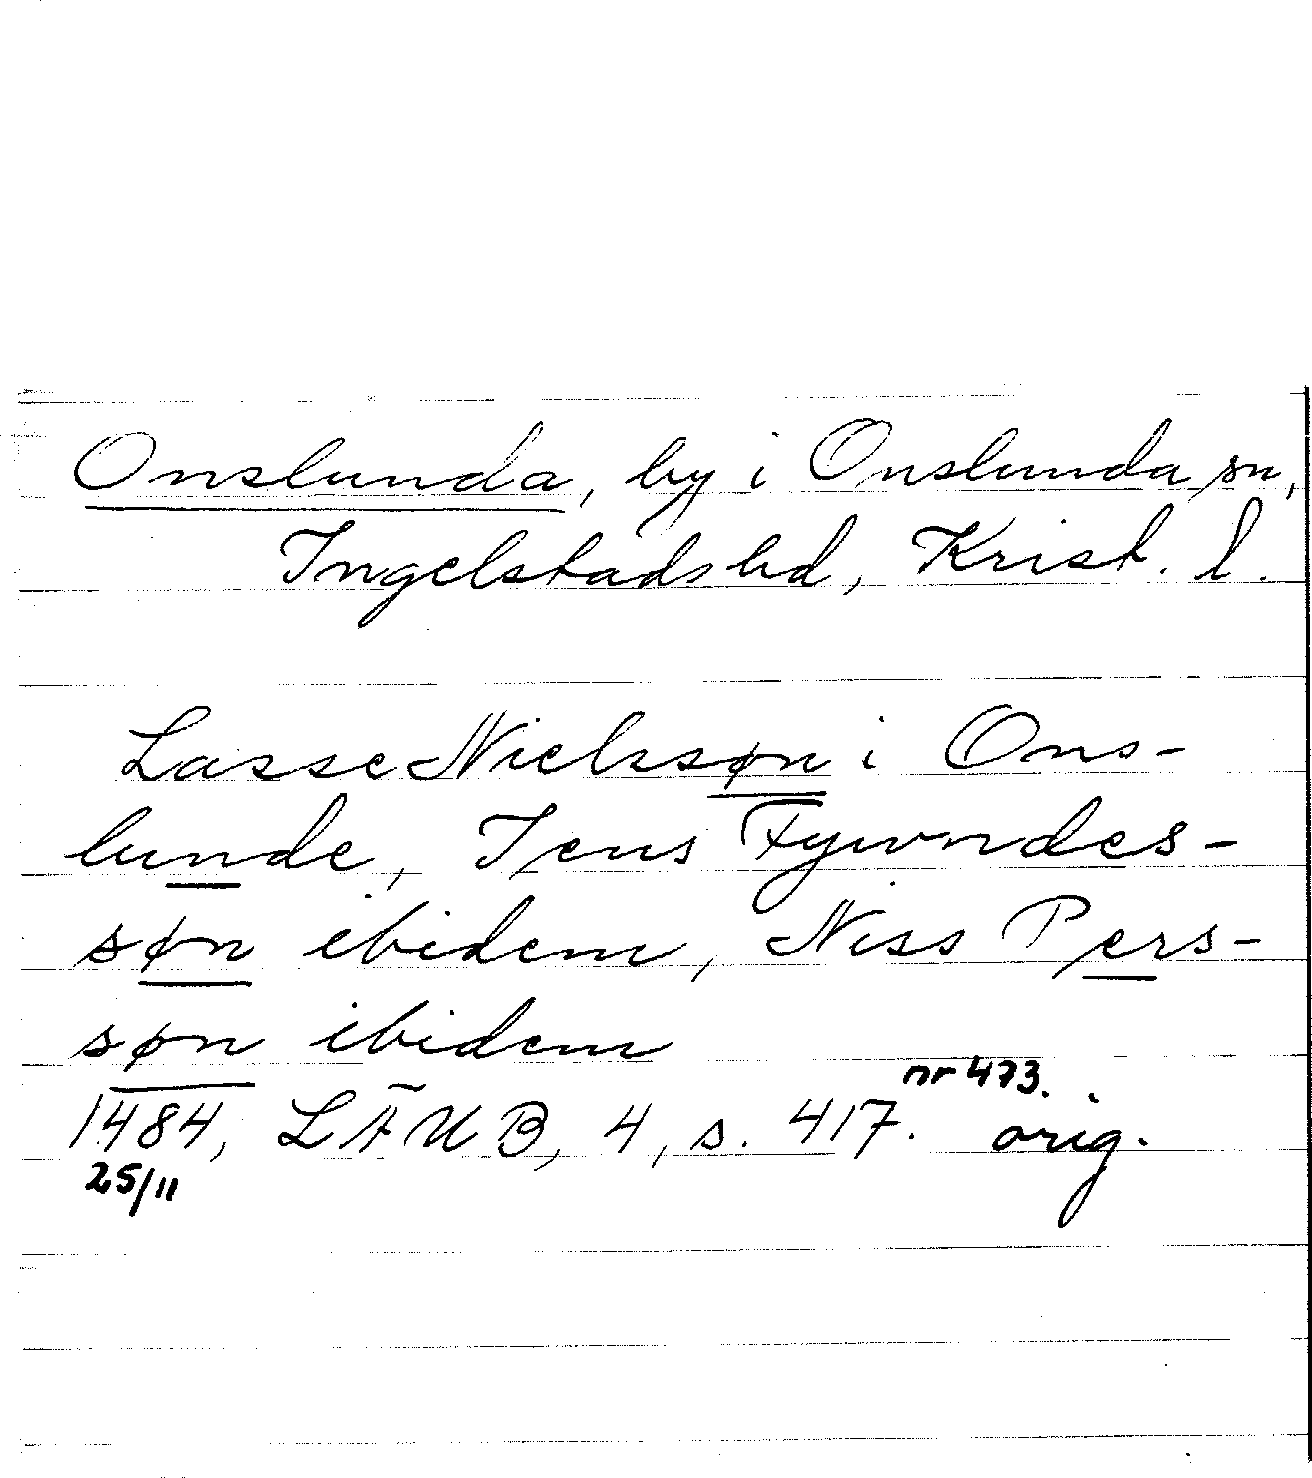 Onslunda, by i Onslunda sn,
Ingelstads hd, Krist. l.
Lasse Nielssøn i Ons-
lunde, Jens Tywndes-
søn ibidem, Niss Pers-
søn ibidem
nr 473.
1484, LÄUB, 4, s. 417. orig.
25/11